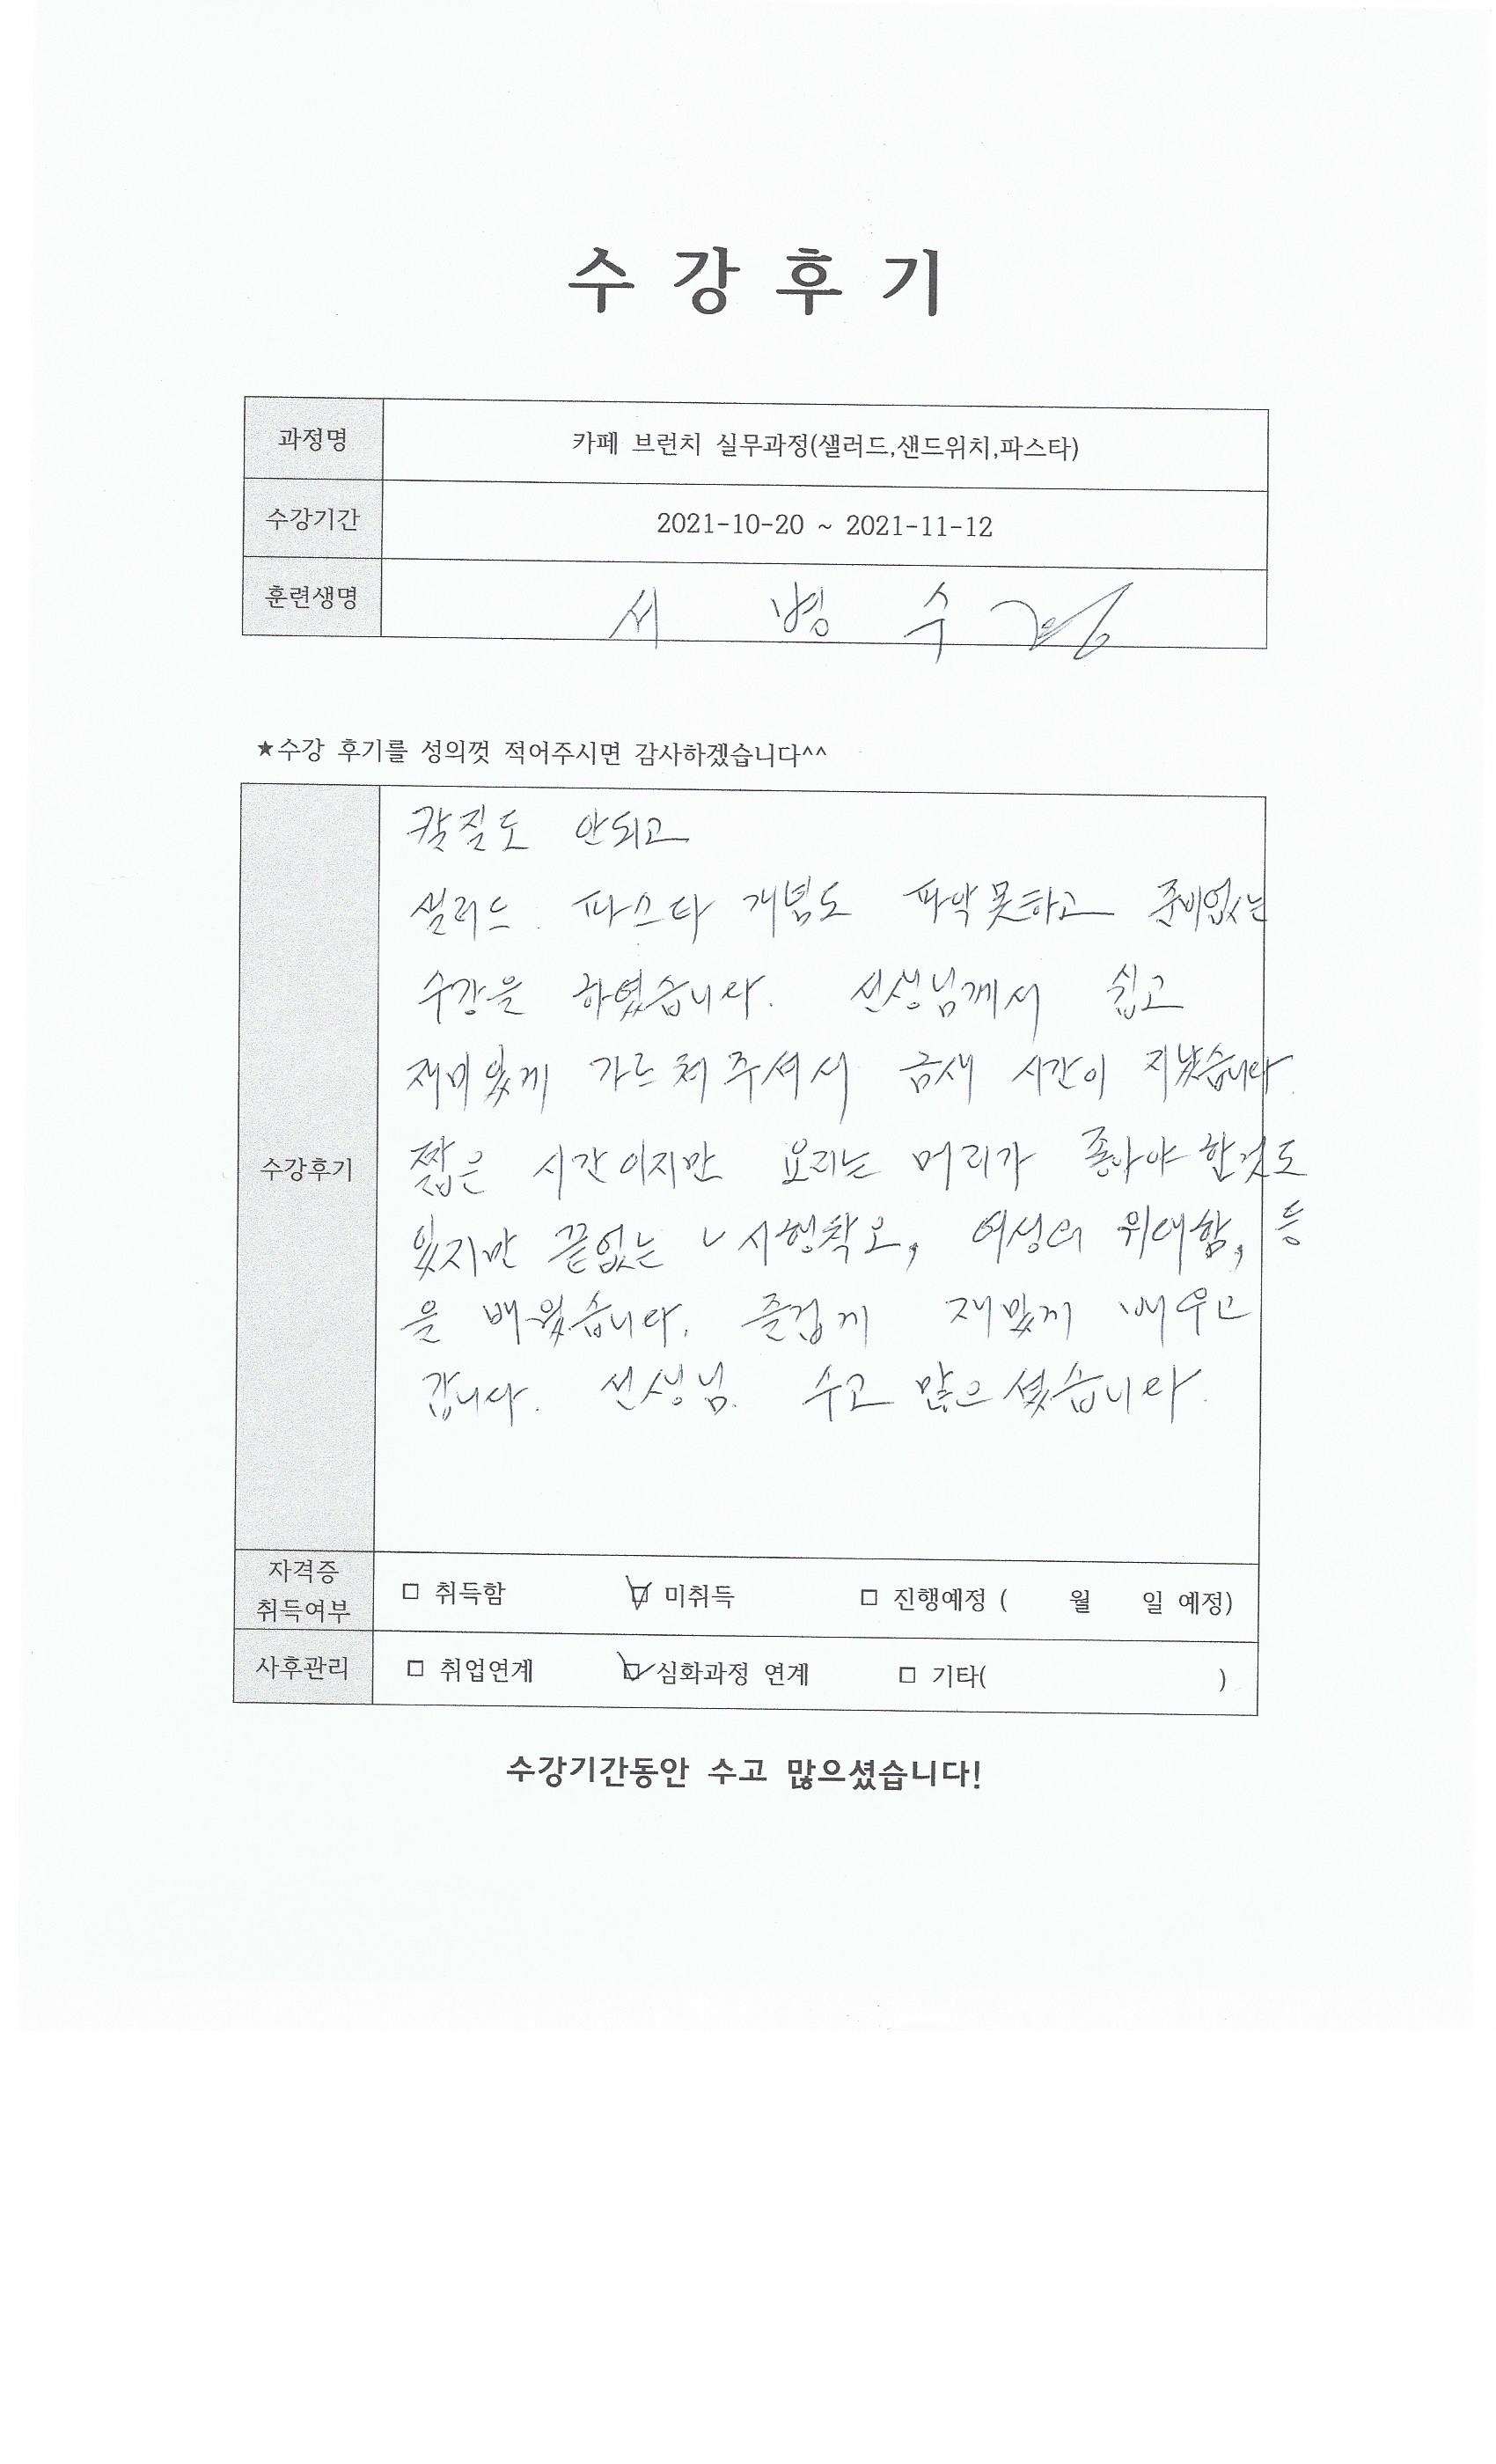 수 강 후 기
과정명 카페 브런치 실무과정(샐러드,샌드위치,파스타)
수강기간 2021-10-20 ~ 2021-11-12
훈련생명 서 병 수
★수강 후기를 성의껏 적어주시면 감사하겠습니다^^
수강후기
칼질도 안되고
샐러드 파스타 개념도 파악못하고 준비없는
수강을 하였습니다. 선생님께서 쉽고
재미있게 가르쳐주셔서 금새 시간이 지났습니다.
짧은 시간이지만 요리는 머리가 좋아야 한것도
있지만 끝없는 시행착오, 여성의 위대함, 등
을 배웠습니다. 즐겁게 재밌게 배우고
갑니다. 선생님. 수고 많으셨습니다.
자격증 취득여부 □ 취득함 ☑ 미취득 □ 진행예정 ( 월 일 예정)
사후관리 □ 취업연계 ☑ 심화과정 연계 □ 기타( )
수강기간동안 수고 많으셨습니다!